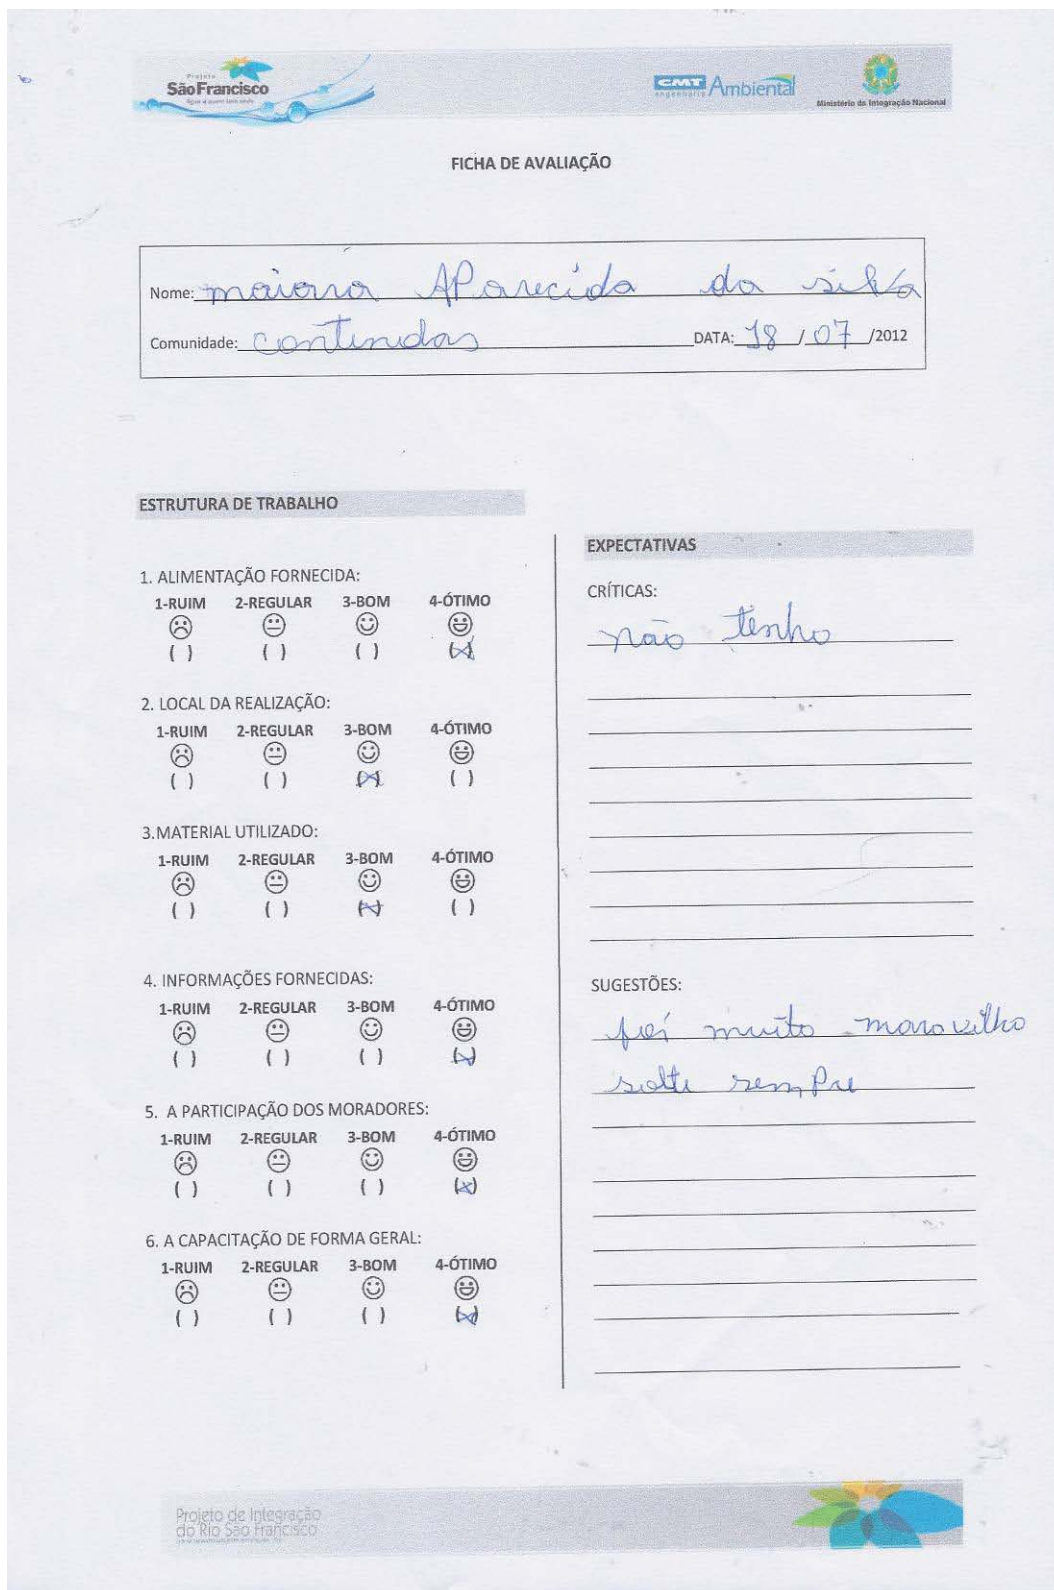 Projeto
São Francisco
Água a quem tem sede
CMT
engenharia
Ambiental
Ministério da Integração Nacional
FICHA DE AVALIAÇÃO
Nome: maiana APARecida da silva
Comunidade: contendas DATA: 18 / 07 /2012
ESTRUTURA DE TRABALHO
1. ALIMENTAÇÃO FORNECIDA:
1-RUIM 2-REGULAR 3-BOM 4-ÓTIMO
( ) ( ) ( ) (x)
2. LOCAL DA REALIZAÇÃO:
1-RUIM 2-REGULAR 3-BOM 4-ÓTIMO
( ) ( ) (x) ( )
3.MATERIAL UTILIZADO:
1-RUIM 2-REGULAR 3-BOM 4-ÓTIMO
( ) ( ) (x) ( )
4. INFORMAÇÕES FORNECIDAS:
1-RUIM 2-REGULAR 3-BOM 4-ÓTIMO
( ) ( ) ( ) (x)
5. A PARTICIPAÇÃO DOS MORADORES:
1-RUIM 2-REGULAR 3-BOM 4-ÓTIMO
( ) ( ) ( ) (x)
6. A CAPACITAÇÃO DE FORMA GERAL:
1-RUIM 2-REGULAR 3-BOM 4-ÓTIMO
( ) ( ) ( ) (x)
EXPECTATIVAS
CRÍTICAS:
não tenho
SUGESTÕES:
foi muito maravilho
solte sempre
Projeto de Integração
do Rio São Francisco